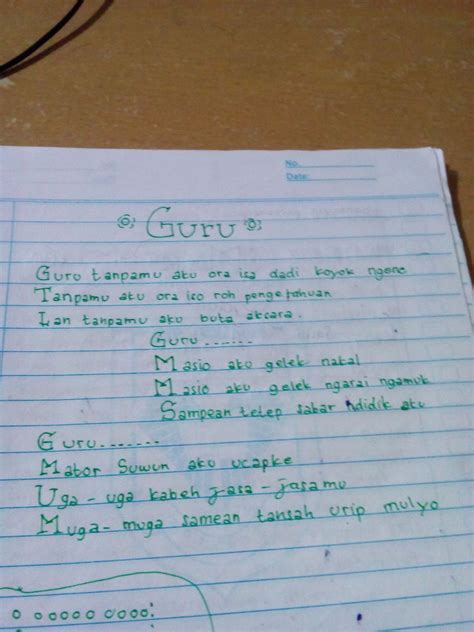 No.
Date:
Guru
Guro tanpamu aku ora isa dadi koyok ngene
Tanpamu aku ora iso roh pengetahuan
Lan tanpamu aku buta aksara.
Guru ......
Masio ako gelek nakal
Masio aku gelek ngarai ngamuk
Sampean tetep sabar ndidik aku
Guru.......
Mator Suwun aku ucapke
Uga - uga kabeh jasa - jasamu
Muga - muga samean tansah urip mulyo